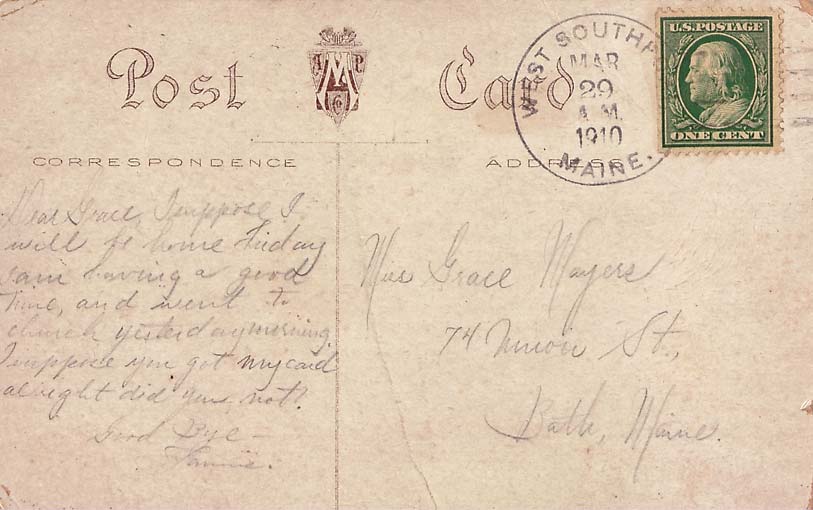 Post Card
A M P Co
CORRESPONDENCE
ADDRESS
WEST SOUTHP
MAR
29
A.M.
1910
MAINE.
U.S. POSTAGE
ONE CENT
Dear Grace, I suppose I
will be home Friday
I am having a good
time, and went to
church yesterday morning.
I suppose you got my card
alright did you not?
Good Bye—
Miss Grace Mayers
74 Union St.,
Bath, Maine.